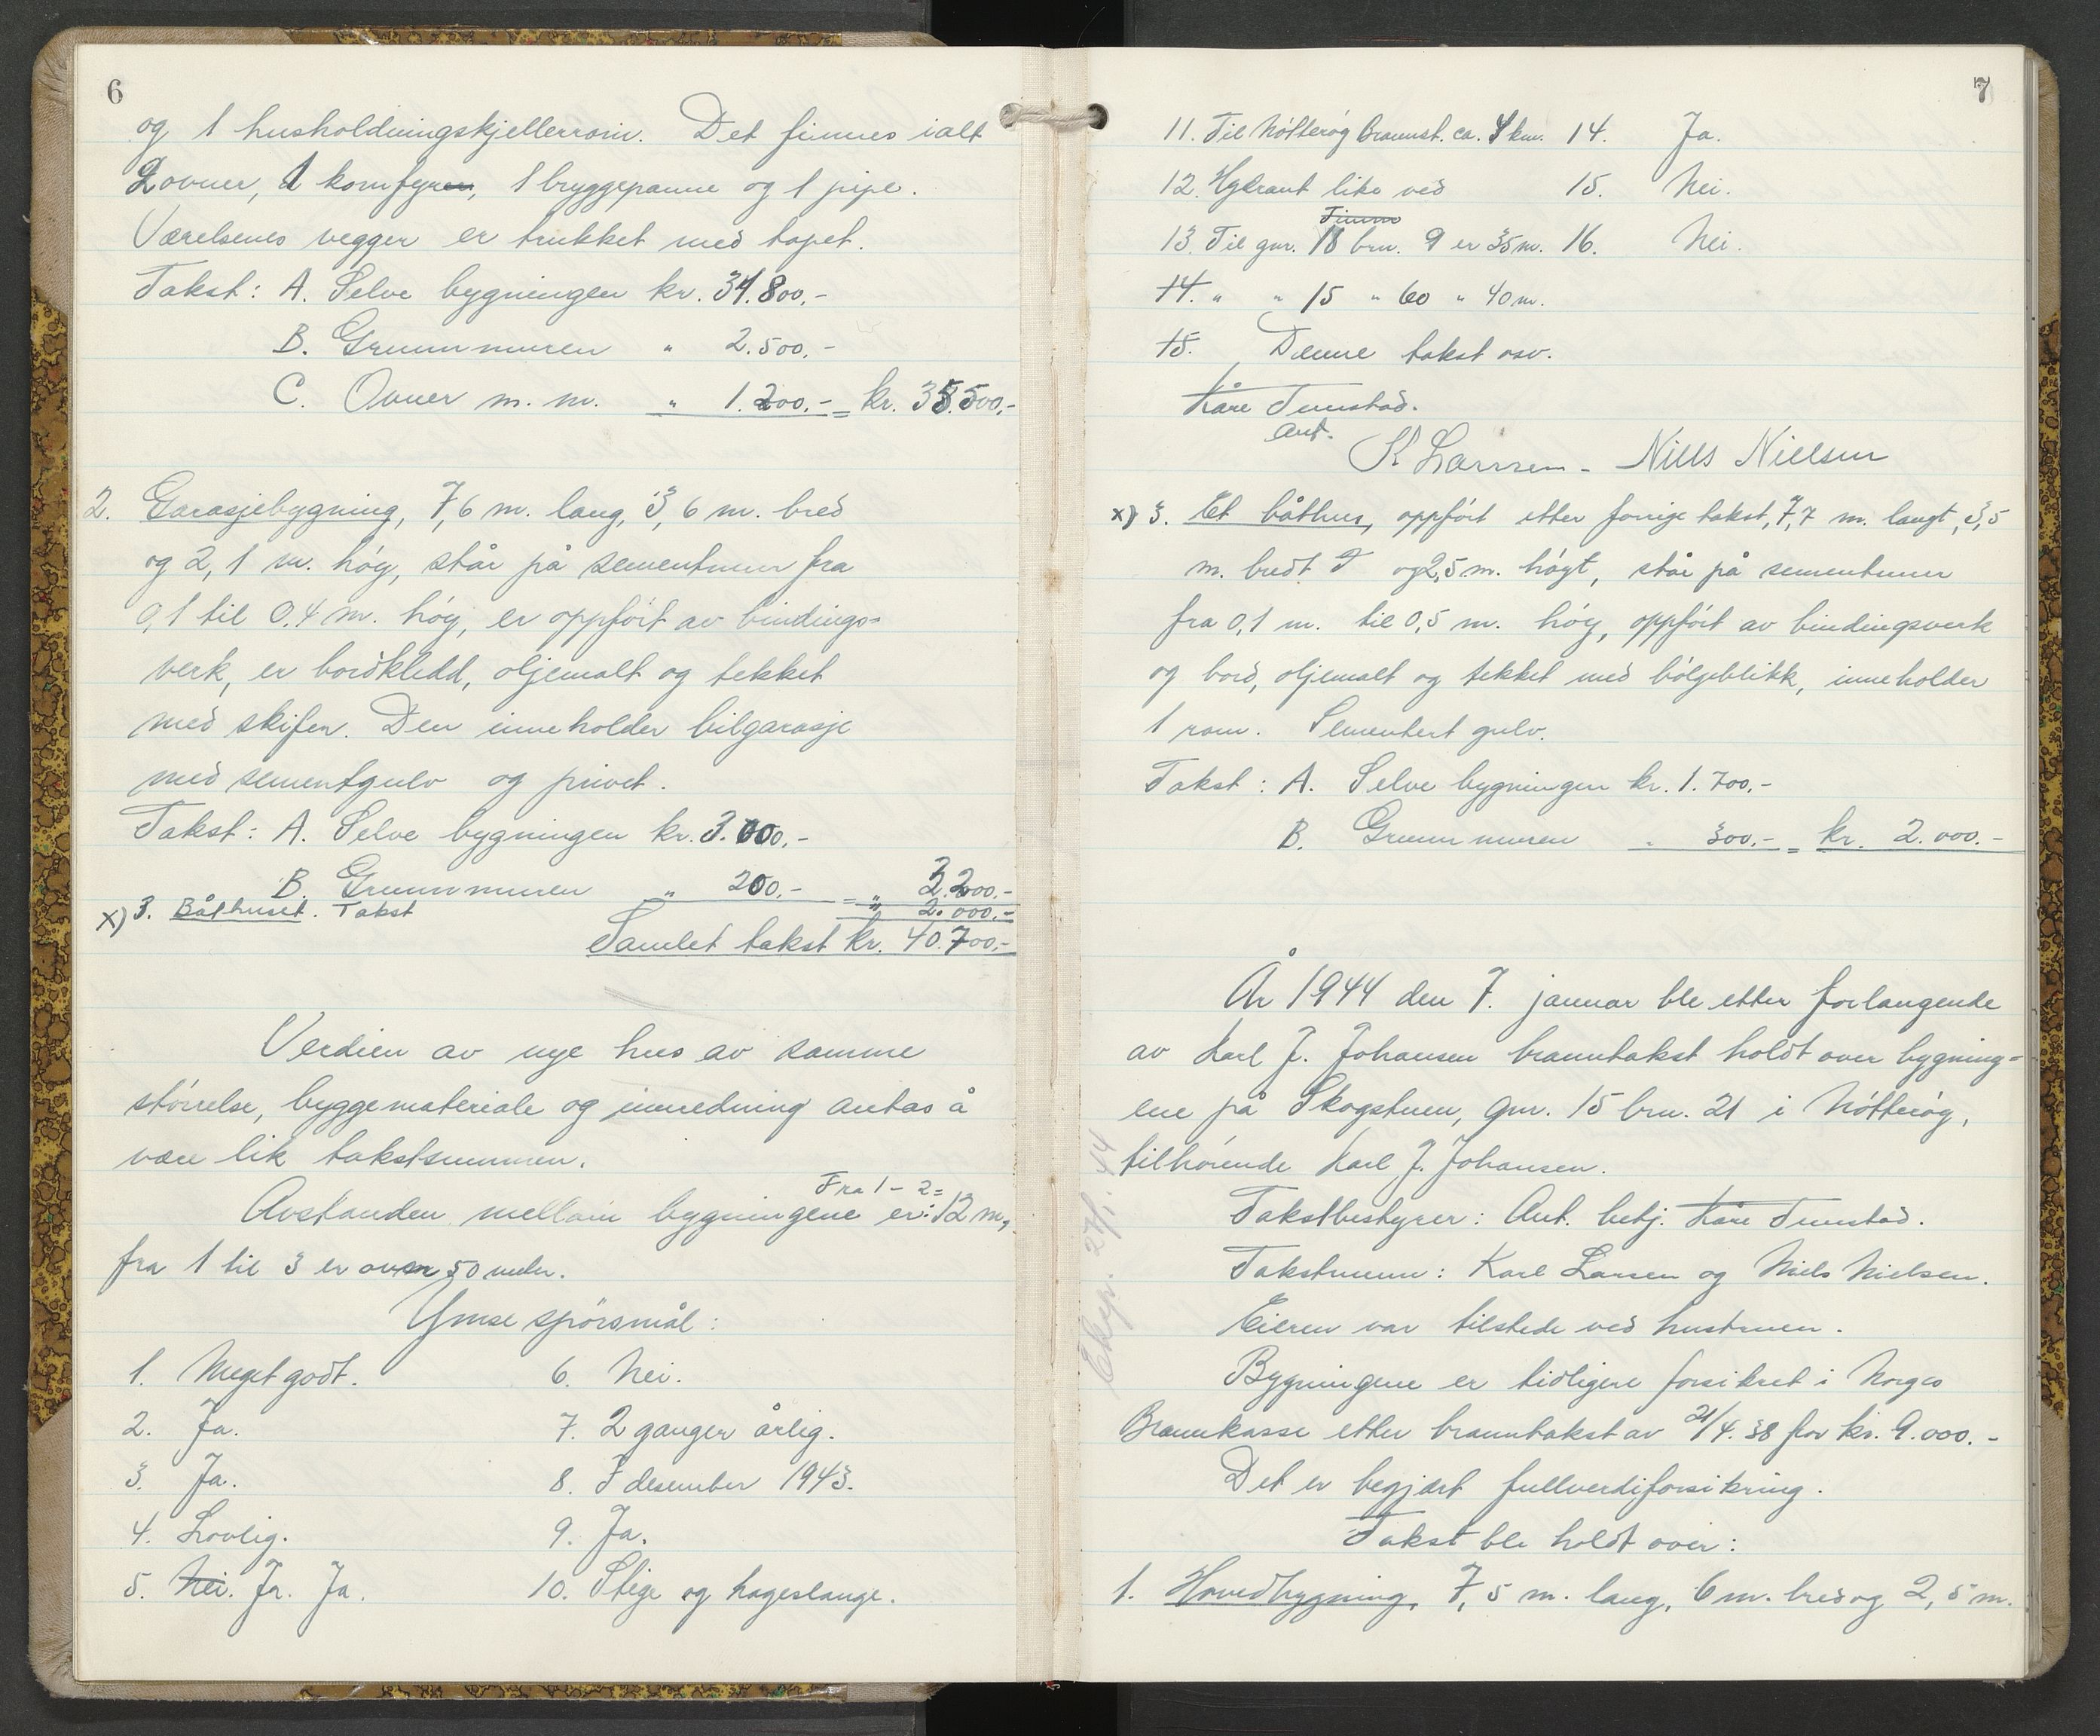 6
og 1 husholdningskjellerrom. Det finnes ialt
2 ovner, 1 komfyr, 1 bryggepanne og 1 pipe.
Værelsenes vegger er trukket med tapet.
Takst: A. Selve bygningen kr. 31.800,-
B. Grunnmuren " 2.500,-
C. Ovner m. m. " 1.200,- = kr. 35.500,-
2. Garasjebygning, 7,6 m. lang, 3,6 m. bred
og 2,1 m. høg, står på sementmur fra
0,1 til 0.4 m. høg, er oppført av bindings=
verk, er bordkledd, oljemalt og tekket
med skifer. Den inneholder bilgarasje
med sementgulv og privet.
Takst: A. Selve bygningen kr. 3.000,-
B. Grunnmuren " 200,- = " 3.200,-
x) 3. Båthuset. Takst " 2.000,-
Samlet takst kr. 40.700,-
Verdien av nye hus av samme
størrelse, byggemateriale og innredning antas å
være lik takstsummen.
Avstanden mellom bygningene er: Fra 1 - 2 = 12 m,
fra 1 til 3 er over 50 meter.
Ymse spørsmål:
1. Meget godt. 6. Nei.
2. Ja. 7. 2 ganger årlig.
3. Ja. 8. I desember 1943.
4. Lovlig. 9. Ja.
5. Nei. Ja. Ja. 10. Stige og hageslange.
7
11. Til Nøtterøy Brannst. ca. 4 km. 14. Ja.
12. Hydrant like ved 15. Nei.
13. Til gnr. 18 brn. 9 er 35 m. 16. Nei.
14. " " 15 " 60 " 40 m.
15. Denne takst osv.
Kåre Tunstad.
Ant.
K Larssen - Niels Nielsen
x) 3. Et båthus, oppført etter forrige takst, 7,7 m. langt, 3,5
m. bredt og 2,5 m. høgt, står på sementmur
fra 0,1 m. til 0,5 m. høg, oppført av bindingsverk
og bord, oljemalt og tekket med bølgeblikk, inneholder
1 rom. Sementert gulv.
Takst: A. Selve bygningen kr. 1.700,-
B. Grunnmuren " 300,- = kr. 2.000.-
År 1944 den 7. januar ble etter forlangende
av Karl J. Johansen branntakst holdt over bygning=
ene på Skogstuen, gnr. 15 brn. 21 i Nøtterøy,
tilhørende Karl J. Johansen.
Takstbestyrer: Ant. betj. Kåre Tunstad.
Takstmenn: Karl Larsen og Niels Nielsen.
Eieren var tilstede ved hustruen.
Bygningene er tidligere forsikret i Norges
Brannkasse etter branntakst av 21/4. 38 for kr. 9.000.-
Det er begjært fullverdiforsikring.
Takst ble holdt over:
1. Hovedbygning, 7,5 m. lang, 6 m. bred og 2,5 m.